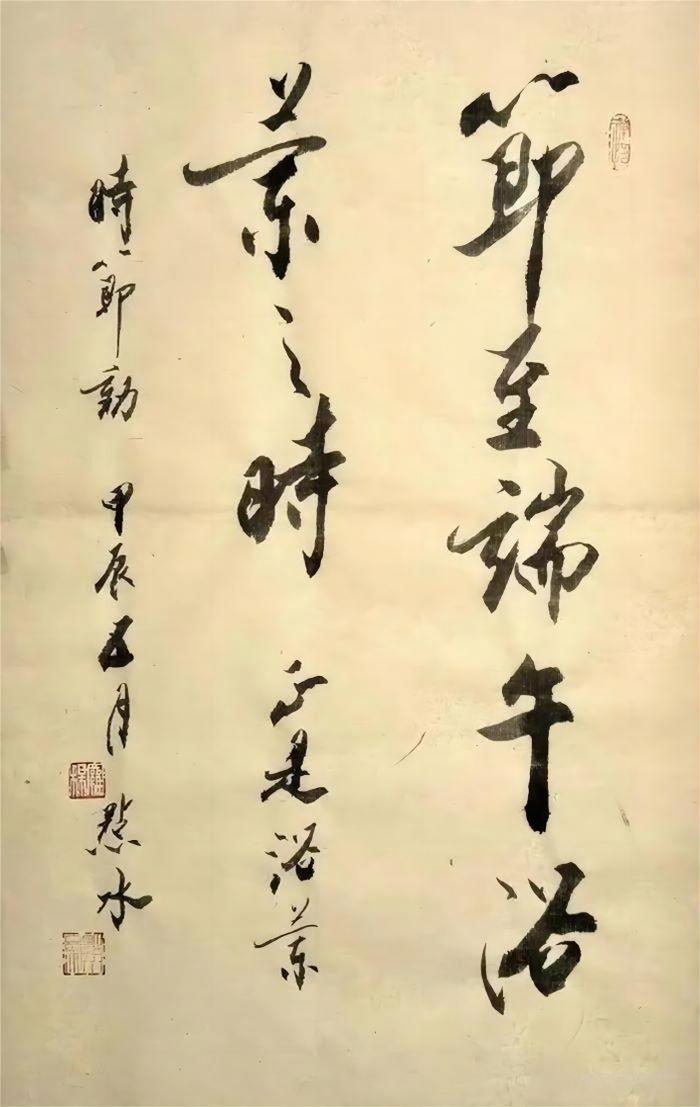 節至端午浴
蘭之時 正是浴蘭
時節動 甲辰五月 水